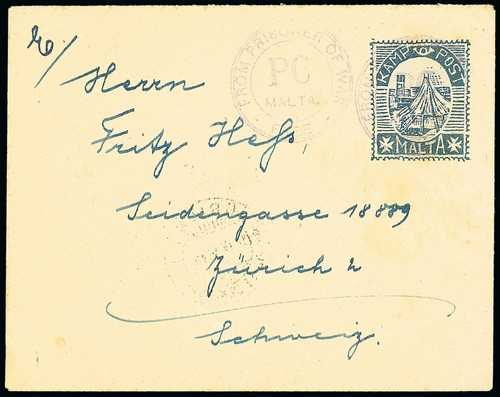 Herrn
Fritz Hefs,
Seidengasse 18889
Zürich
Schweiz.
FROM PRISONER OF WAR
PC
MALTA
KAMP POST
MALTA